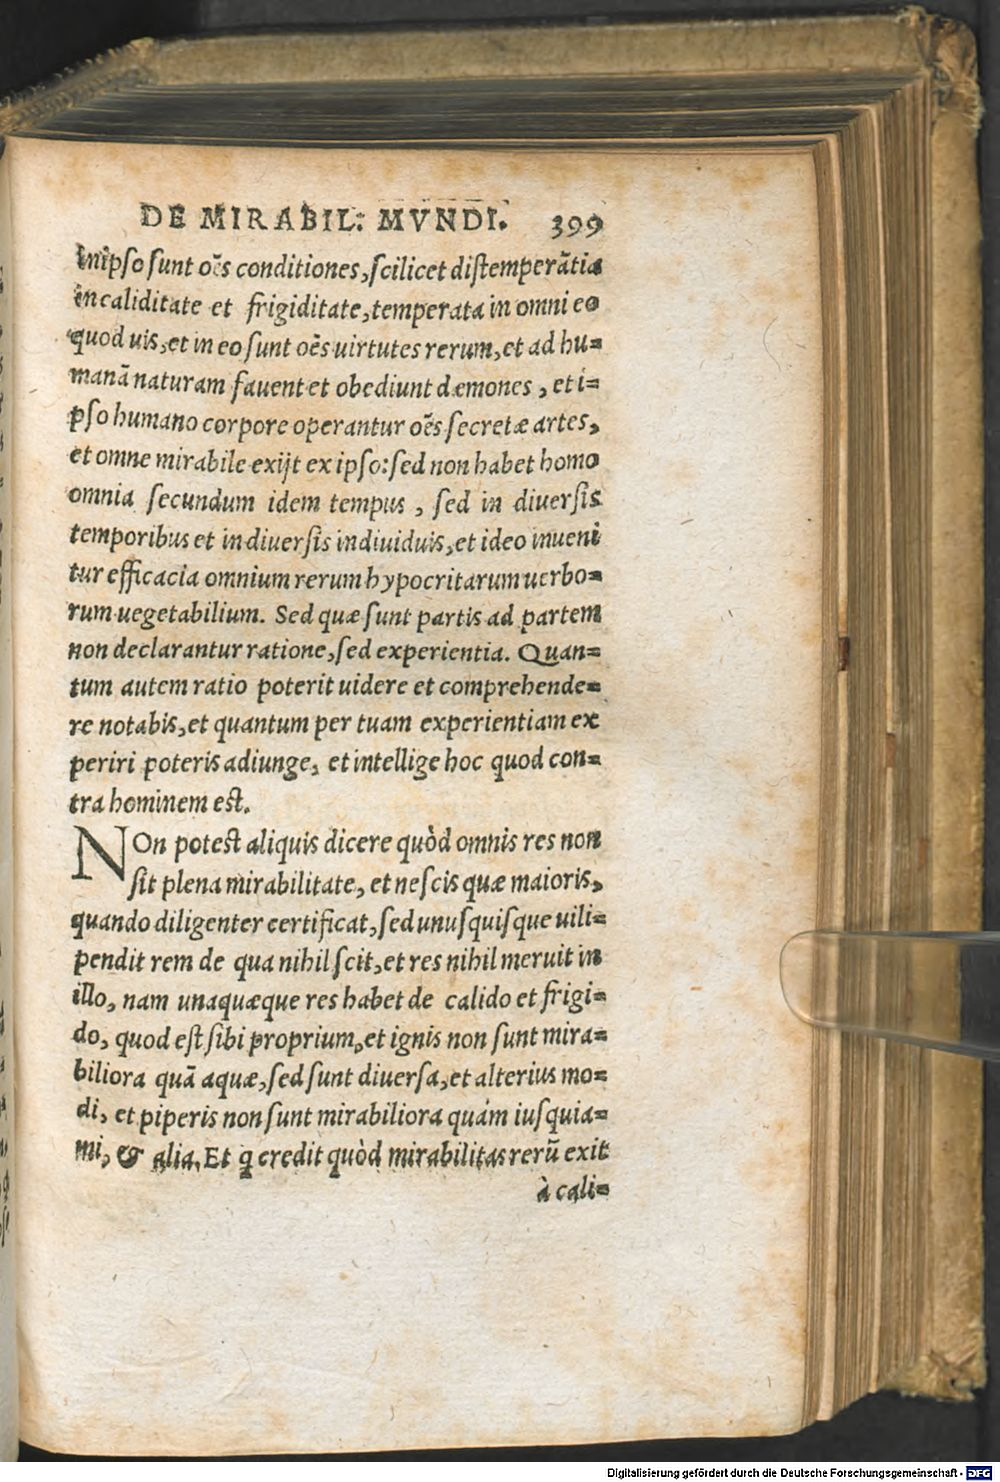 DE MIRABIL: MVNDI. 399
inipso sunt oẽs conditiones, scilicet distemperãtia
in caliditate et frigiditate, temperata in omni eo
quod uis, et in eo sunt oẽs uirtutes rerum, et ad hu=
manã naturam fauent et obediunt dæmones, et i=
pso humano corpore operantur oẽs secretæ artes,
et omne mirabile exijt ex ipso: sed non habet homo
omnia secundum idem tempus, sed in diuersis
temporibus et in diuersis indiuiduis, et ideo inueni
tur efficacia omnium rerum hypocritarum uerbo=
rum uegetabilium. Sed quæ sunt partis ad partem
non declarantur ratione, sed experientia. Quan=
tum autem ratio poterit uidere et comprehende=
re notabis, et quantum per tuam experientiam ex
periri poteris adiunge, et intellige hoc quod con=
tra hominem est.
NOn potest aliquis dicere quòd omnis res non
sit plena mirabilitate, et nescis quæ maioris,
quando diligenter certificat, sed unusquisque uili=
pendit rem de qua nihil scit, et res nihil meruit in
illo, nam unaquæque res habet de calido et frigi=
do, quod est sibi proprium, et ignis non sunt mira=
biliora quã aquæ, sed sunt diuersa, et alterius mo=
di, et piperis non sunt mirabiliora quám iusquia=
mi, & alia. Et q credit quòd mirabilitas rerũ exit
à cali=
Digitalisierung gefördert durch die Deutsche Forschungsgemeinschaft - DFG